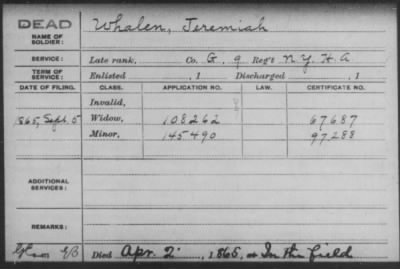 DEAD
NAME OF SOLDIER: Whalen, Jeremiah
SERVICE: Late rank, Co. G, 9 Reg't N.Y. H.A
TERM OF SERVICE: Enlisted , 1 Discharged , 1
DATE OF FILING. CLASS. APPLICATION NO. LAW. CERTIFICATE NO.
Invalid,
1865, Sept. 5 Widow, 108262 67687
Minor, 145490 97288
ADDITIONAL SERVICES:
REMARKS:
Died Apr. 2, 1865, at In the field